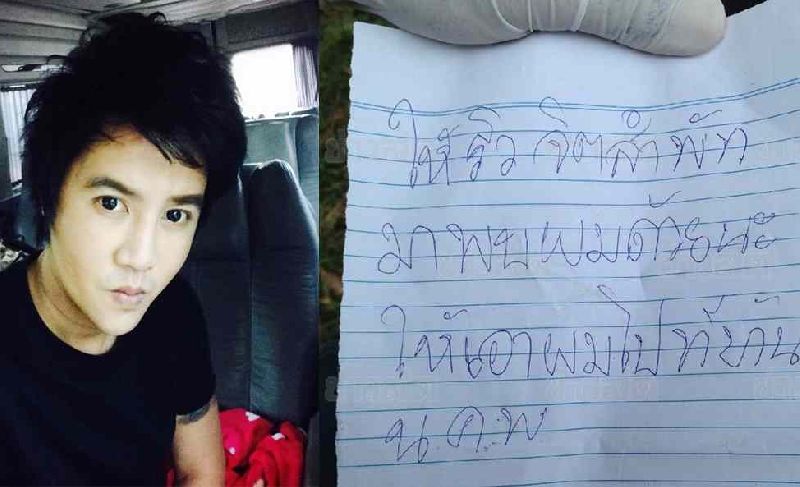 ให้ ริว จิตสำพัท
มาพบผมด้วยนะ
ให้เอาผมไปที่บ้าน
น.ค.พ